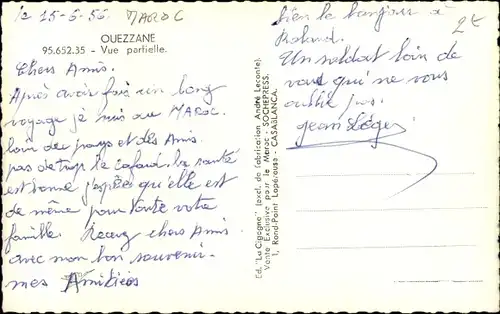 le 15-5-56 MAROC
OUEZZANE
95.652.35 - Vue partielle.
Chers Amis.
Après avoir fais un long
voyage je suis au MAROC.
loin du pays et des Amis.
pas de trop le cafard. la santé
est bonne j'espère qu'elle est
de même pour toute votre
famille. Recevez chers Amis
avec mon bon souvenir
mes Amitiées
Ed. "La Cigogne" (excl. de fabrication André Leconte).
Vente Exclusive pour le Maroc - SOCHEPRESS.
1, Rond-Point Lapérouse - CASABLANCA.
bien le bonjour à
Roland.
Un soldat loin de
vous qui ne vous
oublie pas.
jean Léger
2€